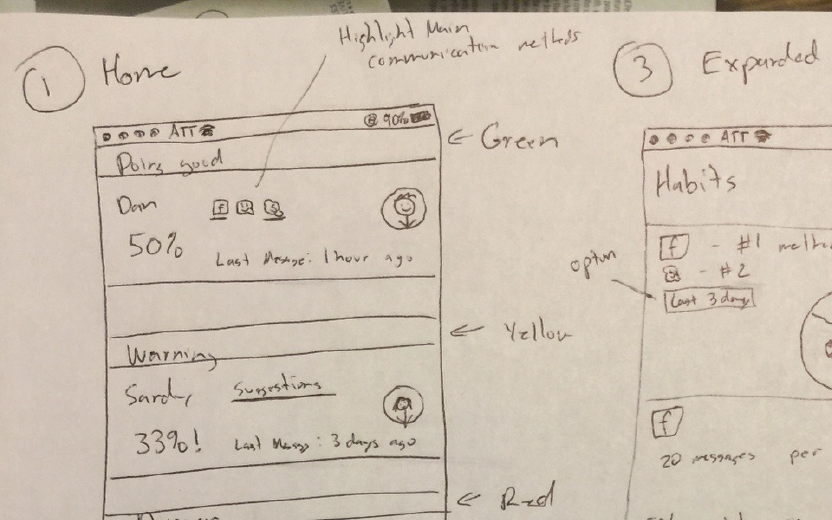 1 Home
Highlight Main
communication methods
ATT @ 90%
← Green
Doing good
Dan f
50% Last Message: 1 hour ago
← Yellow
Warning
Sandy Suggestions
33%! Last Message: 3 days ago
← Red
3 Expanded
ATT
Habits
f - #1
- #2
option
Last 3 days
f
20 messages per